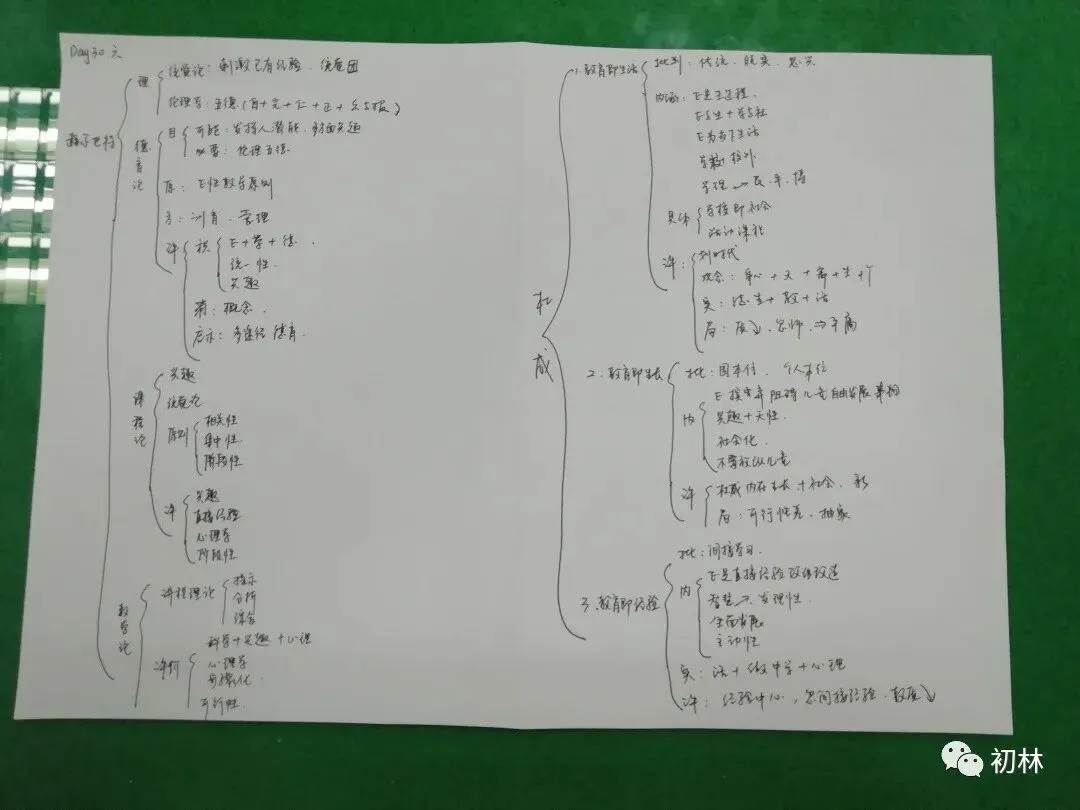 Day30
赫尔巴特
理
统觉论：刺激已有经验、统觉团
伦理学：五德（自+完+仁+正+公与报）
德育论
目
可能：发挥人潜能、多方面兴趣
必要：伦理五德
原：E性教学原则
方：训育、管理
评
积
E+学+德
统一性
兴趣
消：概念
启示：多途径德育
课程论
兴趣
统觉论
原则
相关性
集中性
阶段性
评
兴趣
直接经验
心理学
阶段性
教学论
进程理论
提示
分析
综合
评价
科学+兴趣+心理
心理学
可行性
杜威
1.教育即生活
批判：传统、脱离
内涵：E是生过程
E与生+学与社
E为当下生活
学校
具体
学校即社会
活动课程
评：
划时代
实：德 生+教+活
2.教育即生长
批：国本位、个人本位
内
E 摒弃 阻碍儿童自由发展事物
兴趣+天性
社会化
不要放纵儿童
评
杜威 内在生长+社会、新
局：可行性差、抽象
3.教育即经验
批：间接学习
内
E是直接经验改组改造
智慧
全面发展
主动性
实：活+做中学+心理
评：经验中心，忽间接经验、教质↓
初林